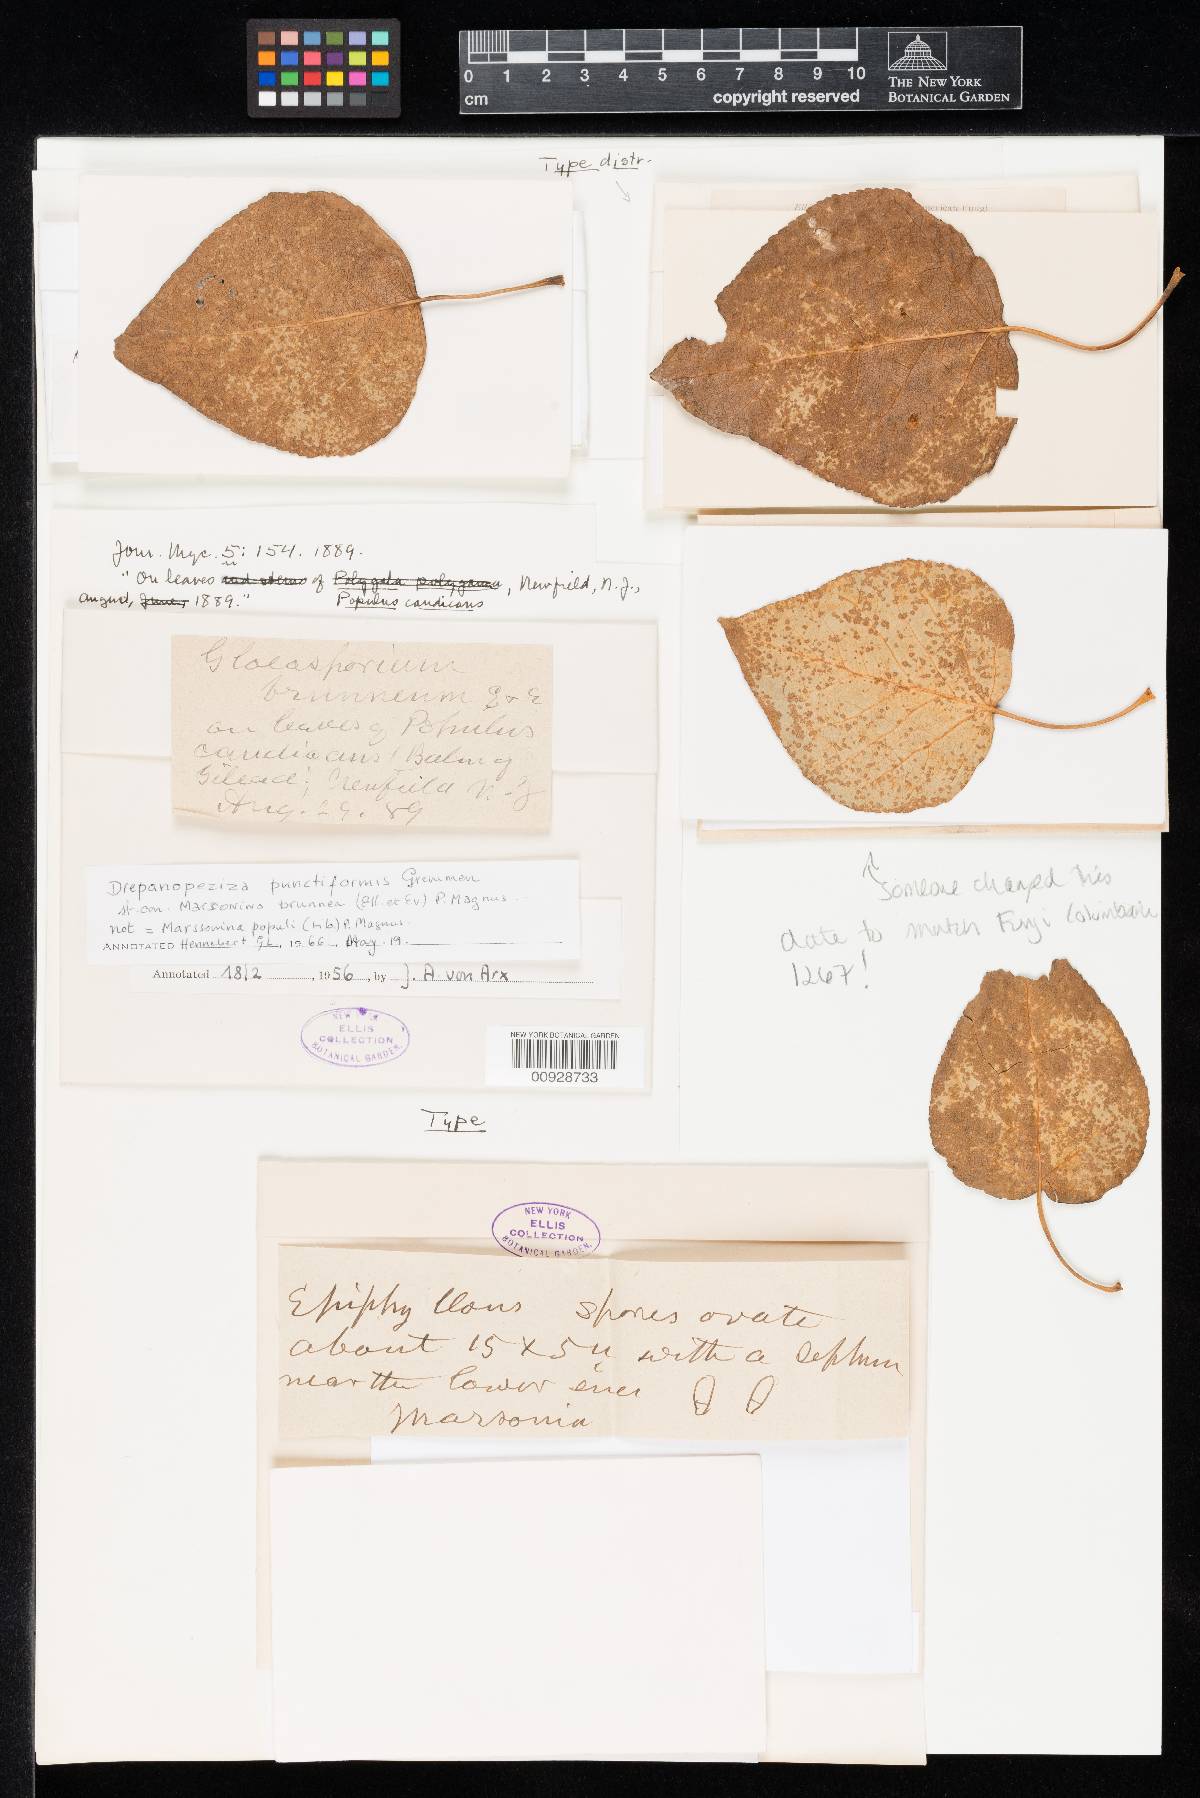 0 1 2 3 4 5 6 7 8 9 10
cm
copyright reserved
THE NEW YORK
BOTANICAL GARDEN
Type distr.
Jour. Myc. 5: 154. 1889.
"On leaves and stems of Polygala polygama, Newfield, N.J.,
August, June, 1889." Populus candicans
Gloeosporium
brunneum E & E
on leaves of Populus
candicans (Balm of
Gilead), Newfield N.J
Aug. 29. 89
Drepanopeziza punctiformis Gremmen
st. con. Marssonina brunnea (Ell. et Ev) P. Magnus
not = Marssonina populi (Lib) P. Magnus
ANNOTATED Hennebert GL, 1966, May 19
Annotated 18/2, 1956, by J. A. von Arx
NEW YORK
ELLIS
COLLECTION
BOTANICAL GARDEN.
NEW YORK BOTANICAL GARDEN
00928733
Type
↑ Someone changed this
date to match Fungi Columbiani
1267!
NEW YORK
ELLIS
COLLECTION
BOTANICAL GARDEN.
Epiphyllous spores ovate
about 15 X 5 u with a septum
near the lower end
Marsonia